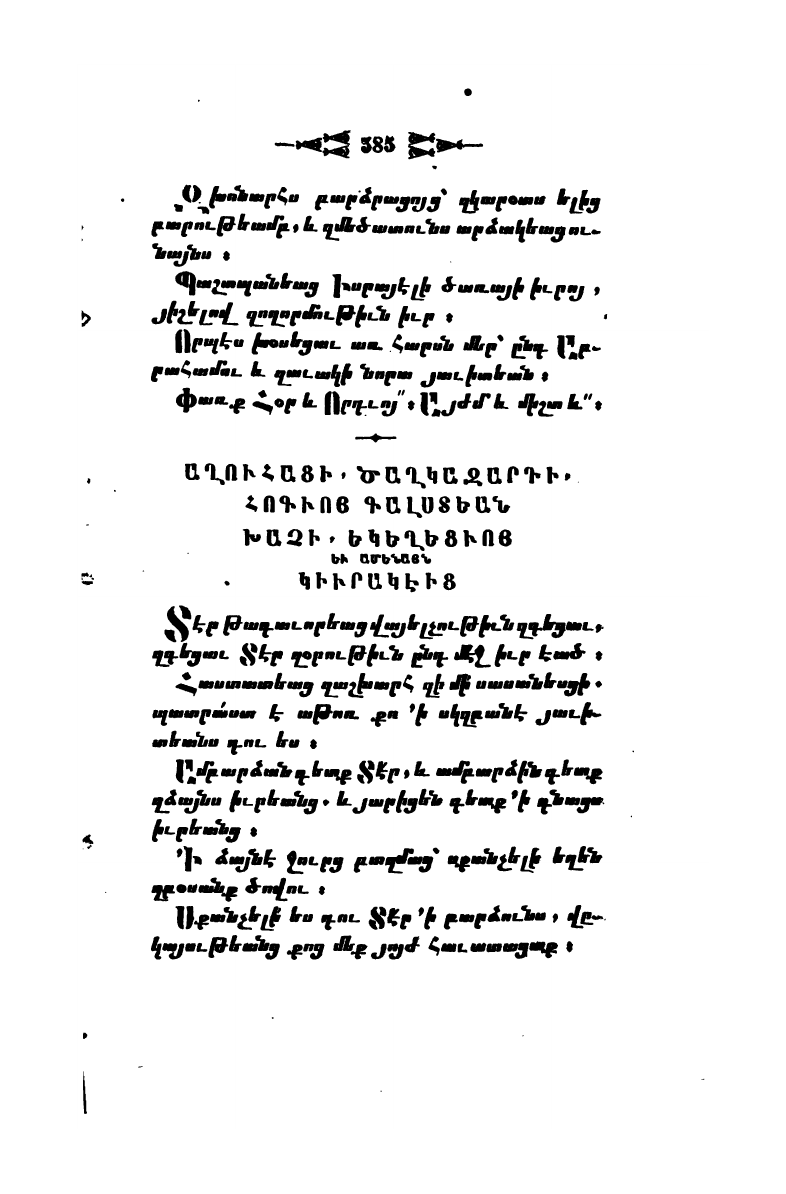 385
Զխոնարհս բարձրացոյց՝ զկարօտս ելից
բարութեամբ, և զմեծատունս արձակեաց ու-
նայնս ։
Պաշտպանեաց Իսրայէլի ծառայի իւրոյ ,
յիշելով զողորմութիւն իւր ։
Որպէս խօսեցաւ առ Հարսն մեր՝ ընդ Աբ-
րահամու և զաւակի նորա յաւիտեան ։
Փառք Հօր և Որդւոյ՛՛։ Այժմ և միշտ և՛՛։
ԱՂՈՒՀԱՑԻ․ ԾԱՂԿԱԶԱՐԴԻ․
ՀՈԳԻՈՑ ԳԱԼՍՏԵԱՆ
ԽԱՉԻ․ ԵԿԵՂԵՑԻՈՑ
ԵՒ ԱՄԵՆԱՅՆ
ԿԻՒՐԱԿԷԻՑ
Տէր թագաւորեաց վայելչութիւն զգեցաւ,
զգեցաւ Տէր զօրութիւն ընդ մէջ իւր էած ։
Հաստատեաց զաշխարհ զի մի սասանեսցի․
պատրաստ է աթոռ քո ՚ի սկզբանէ յաւի-
տեանս դու ես ։
Ամբարձան գետք Տէր, և ամբարձին գետք
զձայնս իւրեանց․ և յարիցեն գետք ՚ի գնացս
իւրեանց ։
՚Ի ձայնէ ջուրց բազմաց՝ սքանչելի եղեն
զբօսանք ծովու ։
Սքանչելի ես դու Տէր ՚ի բարձունս , վը-
կայութեանց քոց մեք յոյժ հաւատացաք ։